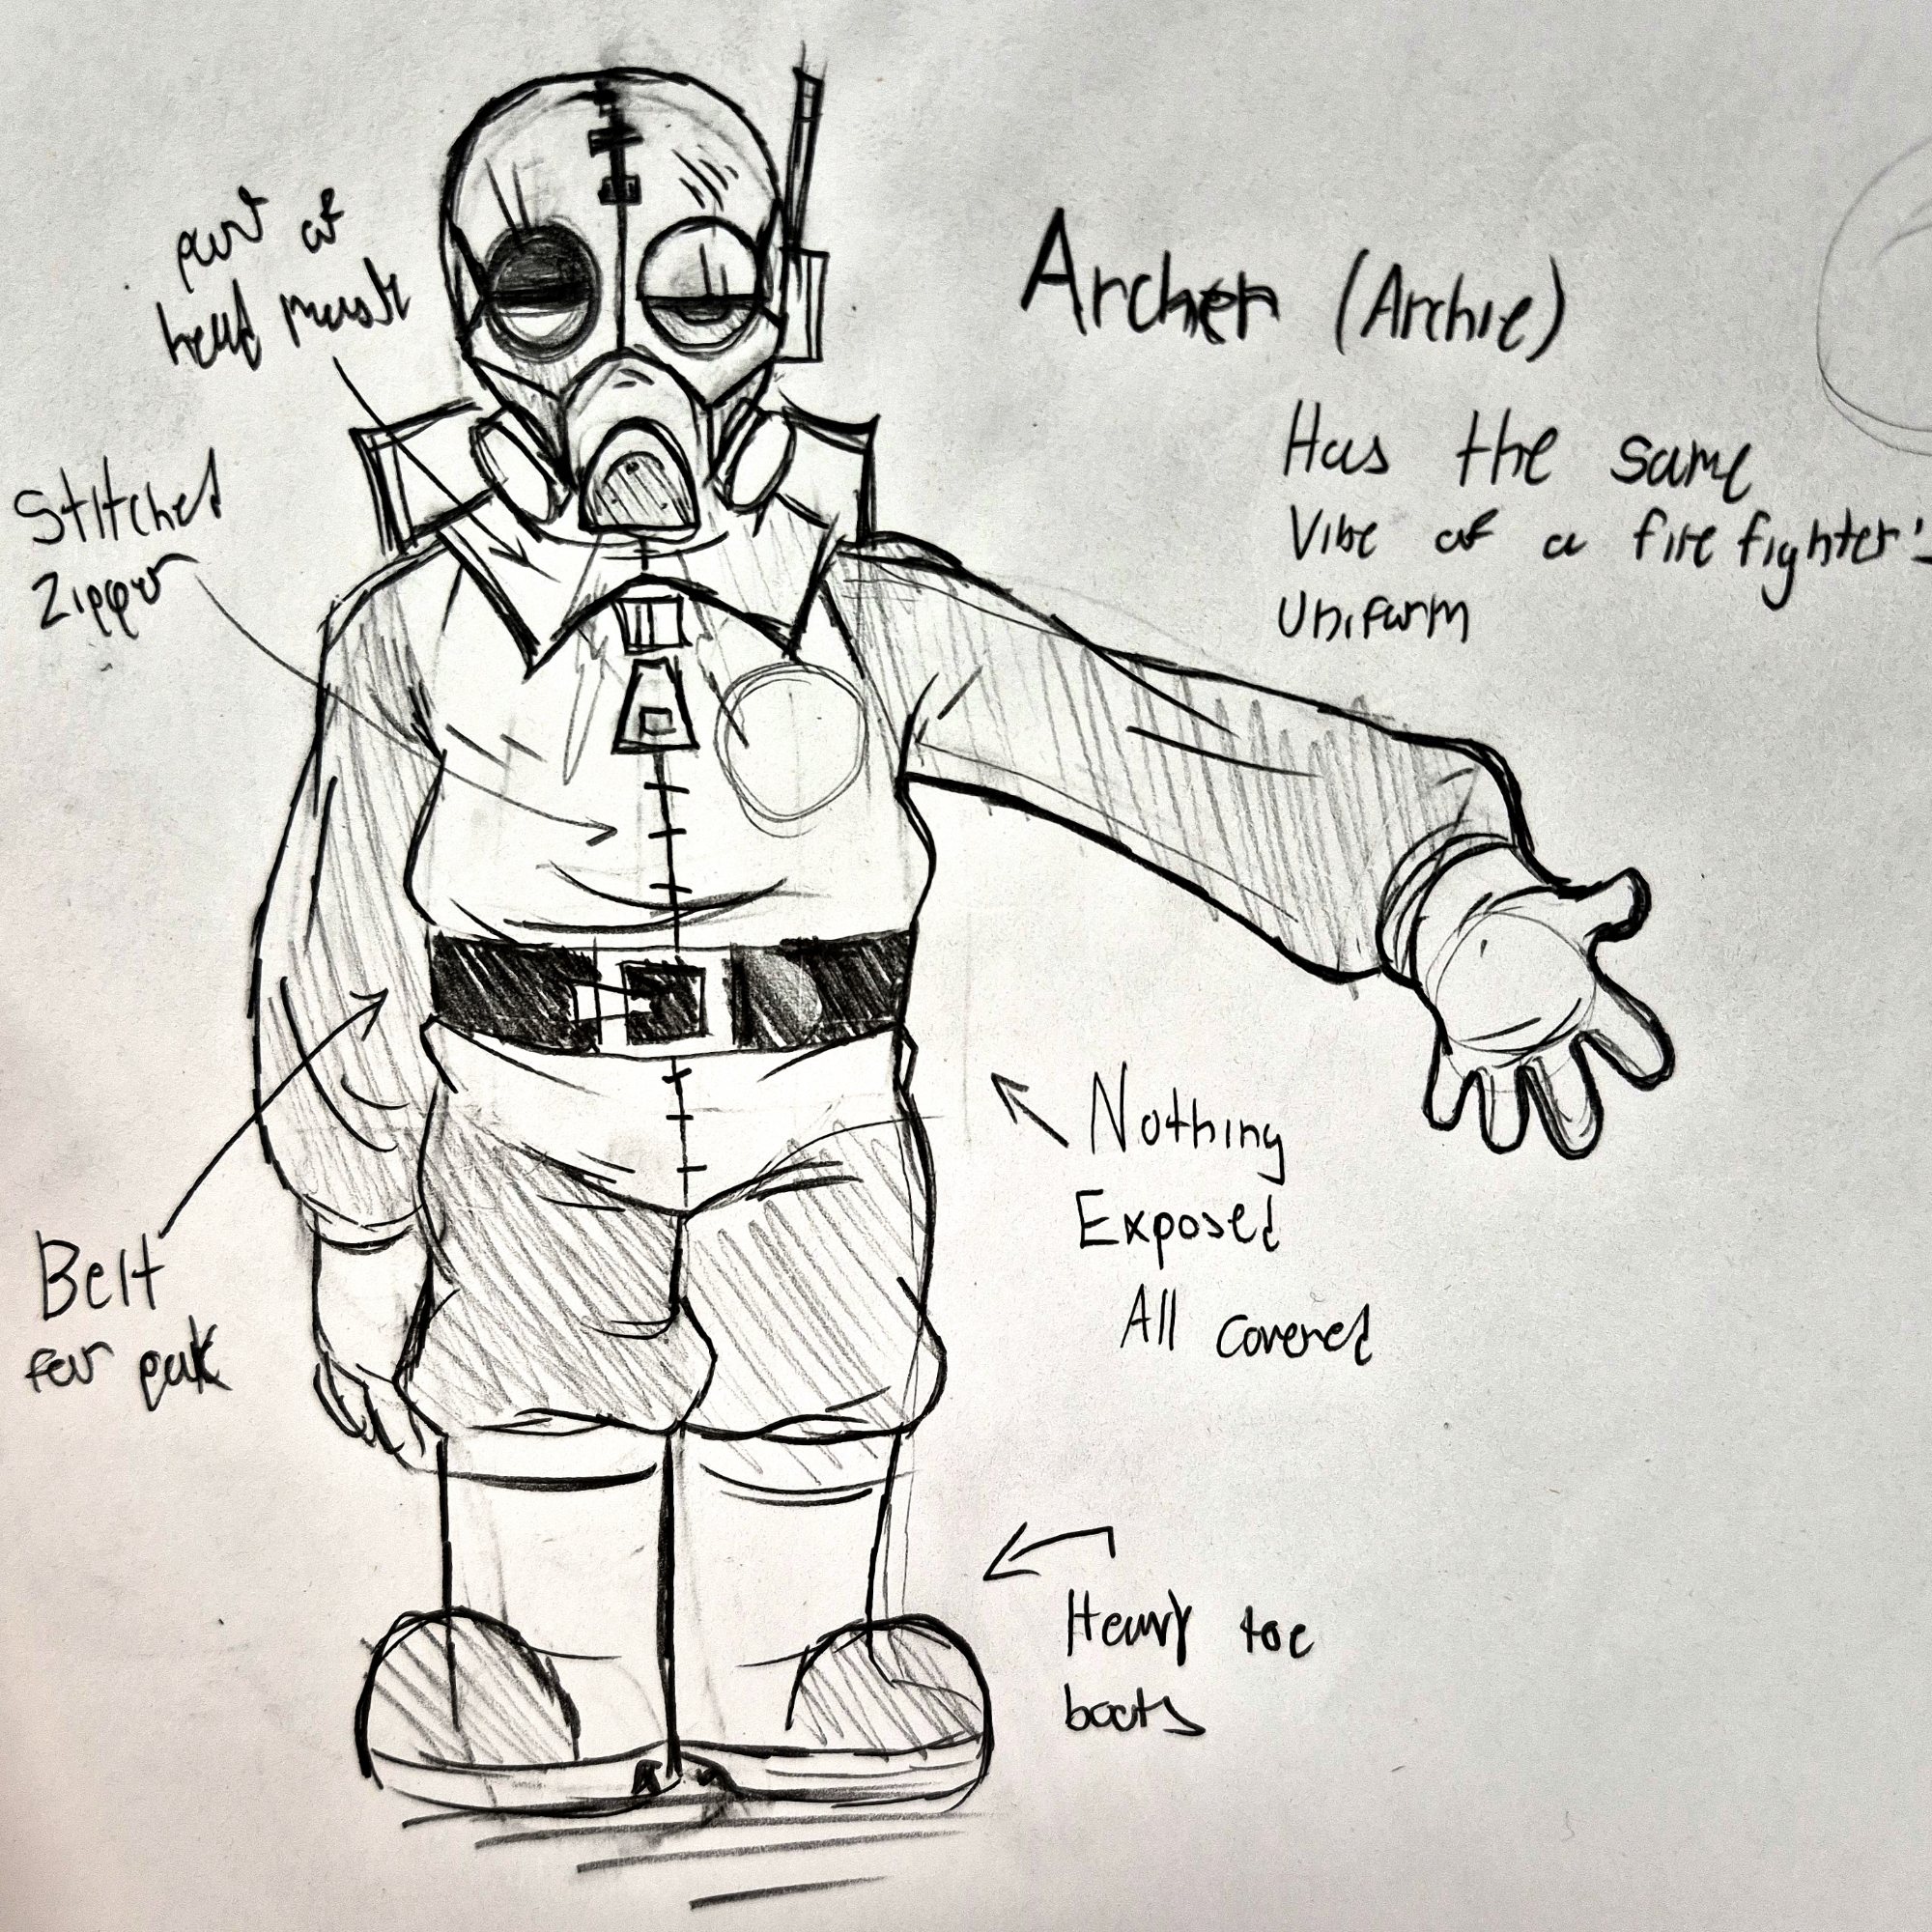 part of
head mask
Stitched
Zipper
Belt
for pak
Archer (Archie)
Has the same
Vibe of a fire fighter's
Uniform
Nothing
Exposed
All covered
Heavy toe
boots